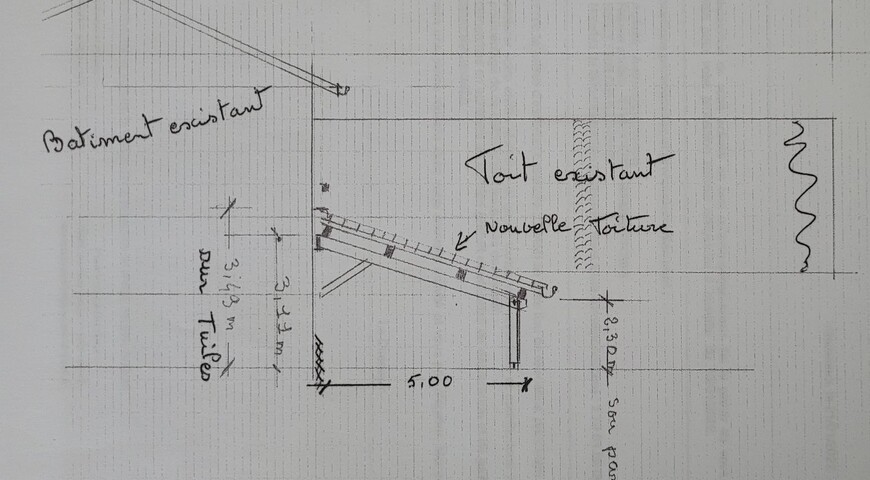 Batiment existant
Toit existant
Nouvelle Toiture
3,49 m
sur Tuiles
5,00
2,30 m sou